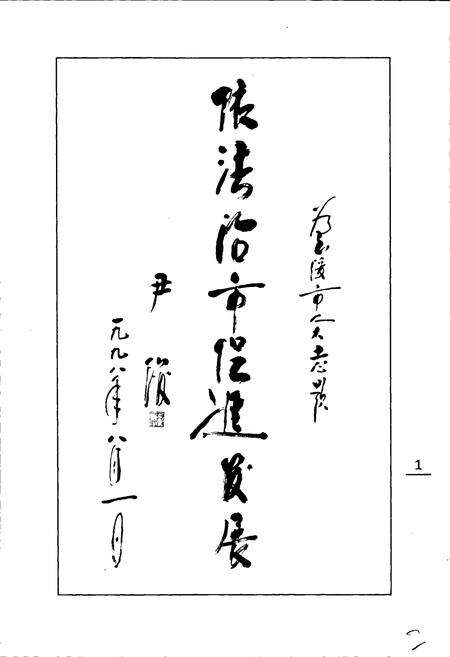 为玉溪市人大志题
依法治市促進发展
尹俊
一九九八年八月一日
1